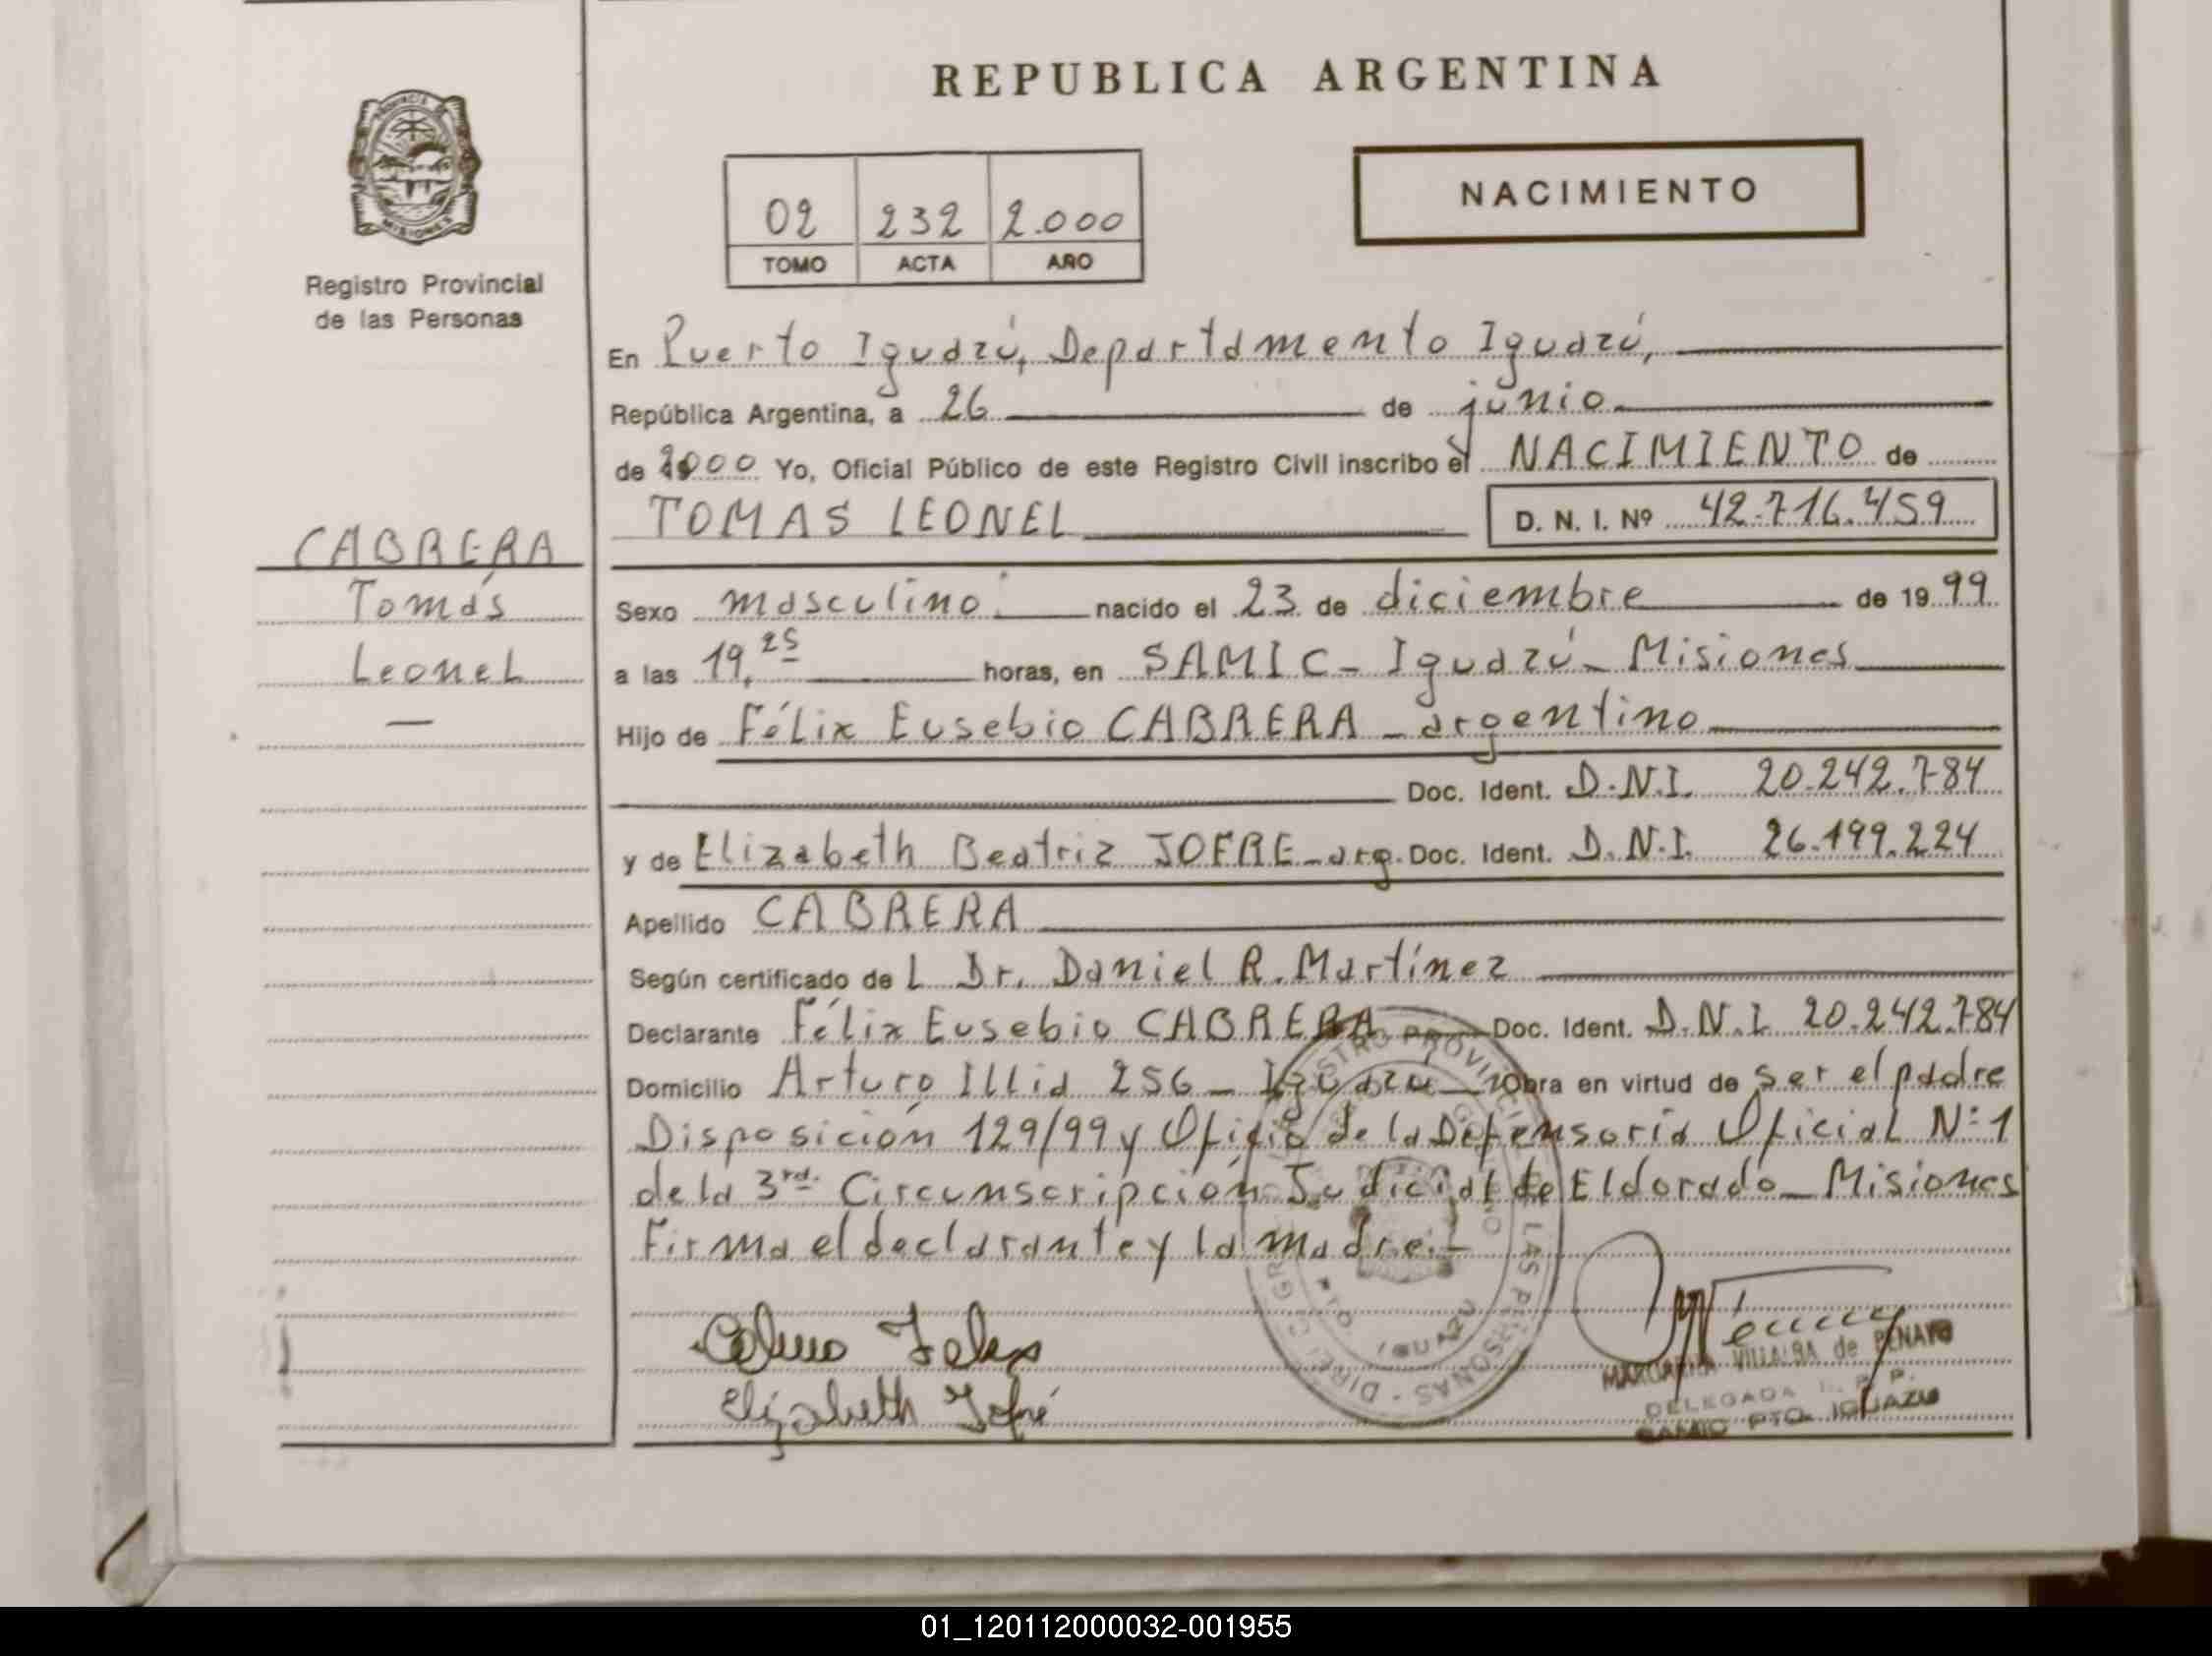 REPUBLICA ARGENTINA
NACIMIENTO
PROVINCIA DE
MISIONES
Registro Provincial
de las Personas
02 232 2.000
TOMO ACTA AÑO
En Puerto Iguazú, Departamento Iguazú,
República Argentina, a 26 de junio
de 2000 Yo, Oficial Público de este Registro Civil inscribo el NACIMIENTO de
TOMAS LEONEL D. N. I. Nº 42.716.459
CABRERA
Tomás
Leonel
—
Sexo masculino. nacido el 23 de diciembre de 1999
a las 19,25 horas, en SAMIC - Iguazú - Misiones
Hijo de Félix Eusebio CABRERA - argentino
Doc. Ident. D.N.I. 20.242.784
y de Elizabeth Beatriz JOFRE - arg. Doc. Ident. D.N.I. 26.199.224
Apellido CABRERA
Según certificado de L Dr. Daniel R. Martínez
Declarante Félix Eusebio CABRERA Doc. Ident. D.N.I. 20.242.784
Domicilio Arturo Illia 256 - Iguazu - Obra en virtud de ser el padre
Disposición 129/99 y Oficio de la Defensoría Oficial Nº 1
de la 3rd. Circunscripción Judicial de Eldorado - Misiones
Firma el declarante y la madre.-
Felix
Elizabeth Jofré
MARGARITA VILLALBA de PENAYO
DELEGADA R. P. P.
SAMIC PTO. IGUAZU
01_120112000032-001955